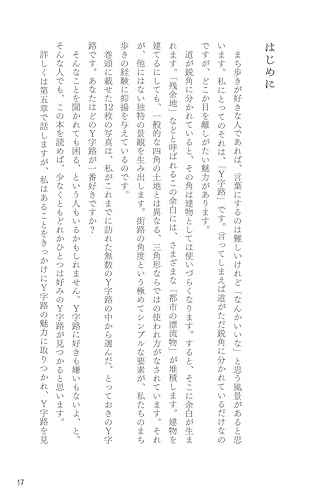 はじめに
まち歩きが好きな人であれば、言葉にするのは難しいけれど「なんかいいな」と思う風景があると思
います。私にとってのそれは、「Y字路」です。言ってしまえば道がただ鋭角に分かれているだけなの
ですが、どこか目を離しがたい魅力があります。
道が鋭角に分かれていると、その角は建物としては使いづらくなります。すると、そこに余白が生ま
れます。「残余地」などと呼ばれるこの余白には、さまざまな「都市の漂流物」が堆積します。建物を
建てるにしても、一般的な四角の土地とは異なる、三角形ならではの使われ方がなされています。それ
が、他にはない独特の景観を生み出します。街路の角度という極めてシンプルな要素が、私たちのまち
歩きの経験に抑揚を与えているのです。
巻頭に載せた12枚の写真は、私がこれまでに訪れた無数のY字路の中から選んだ、とっておきのY字
路です。あなたはどのY字路が一番好きですか?
そんなことを聞かれても困る、という人もいるかもしれません。Y字路に好きも嫌いもないよ、と。
そんな人でも、この本を読めば、少なくともどれかひとつは好みのY字路が見つかると思います。
詳しくは第五章で話しますが、私はあることをきっかけにY字路の魅力に取りつかれ、Y字路を見
17